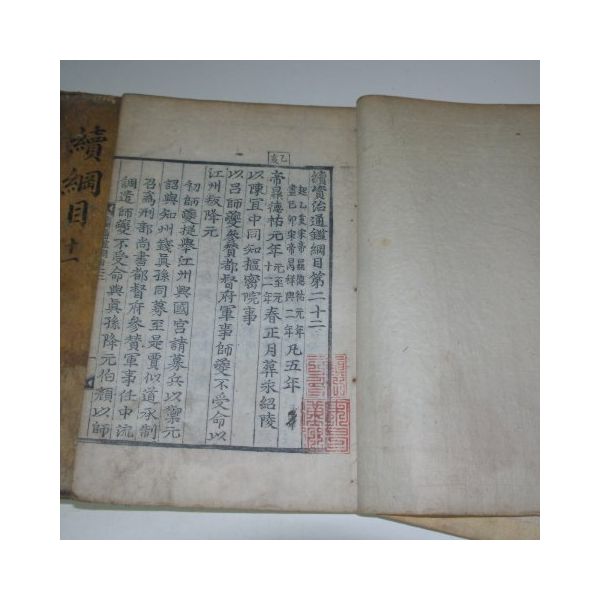 續資治通鑑綱目第二十二
起乙亥宋帝㬎德祐元年
盡己卯宋帝昺祥興二年凡五年
乙亥
帝㬎德祐元年元至元十二年春正月葬永紹陵
以陳宜中同知樞密院事
以呂師夔參贊都督府軍事師夔不受命以
江州叛降元
初師夔提舉江州興國宮請募兵以禦元
詔與知州錢眞孫同募至是賈似道承制
召爲刑部尚書都督府參贊軍事任中流
調遣師夔不受命與眞孫降元伯顔以師
續綱目 十一